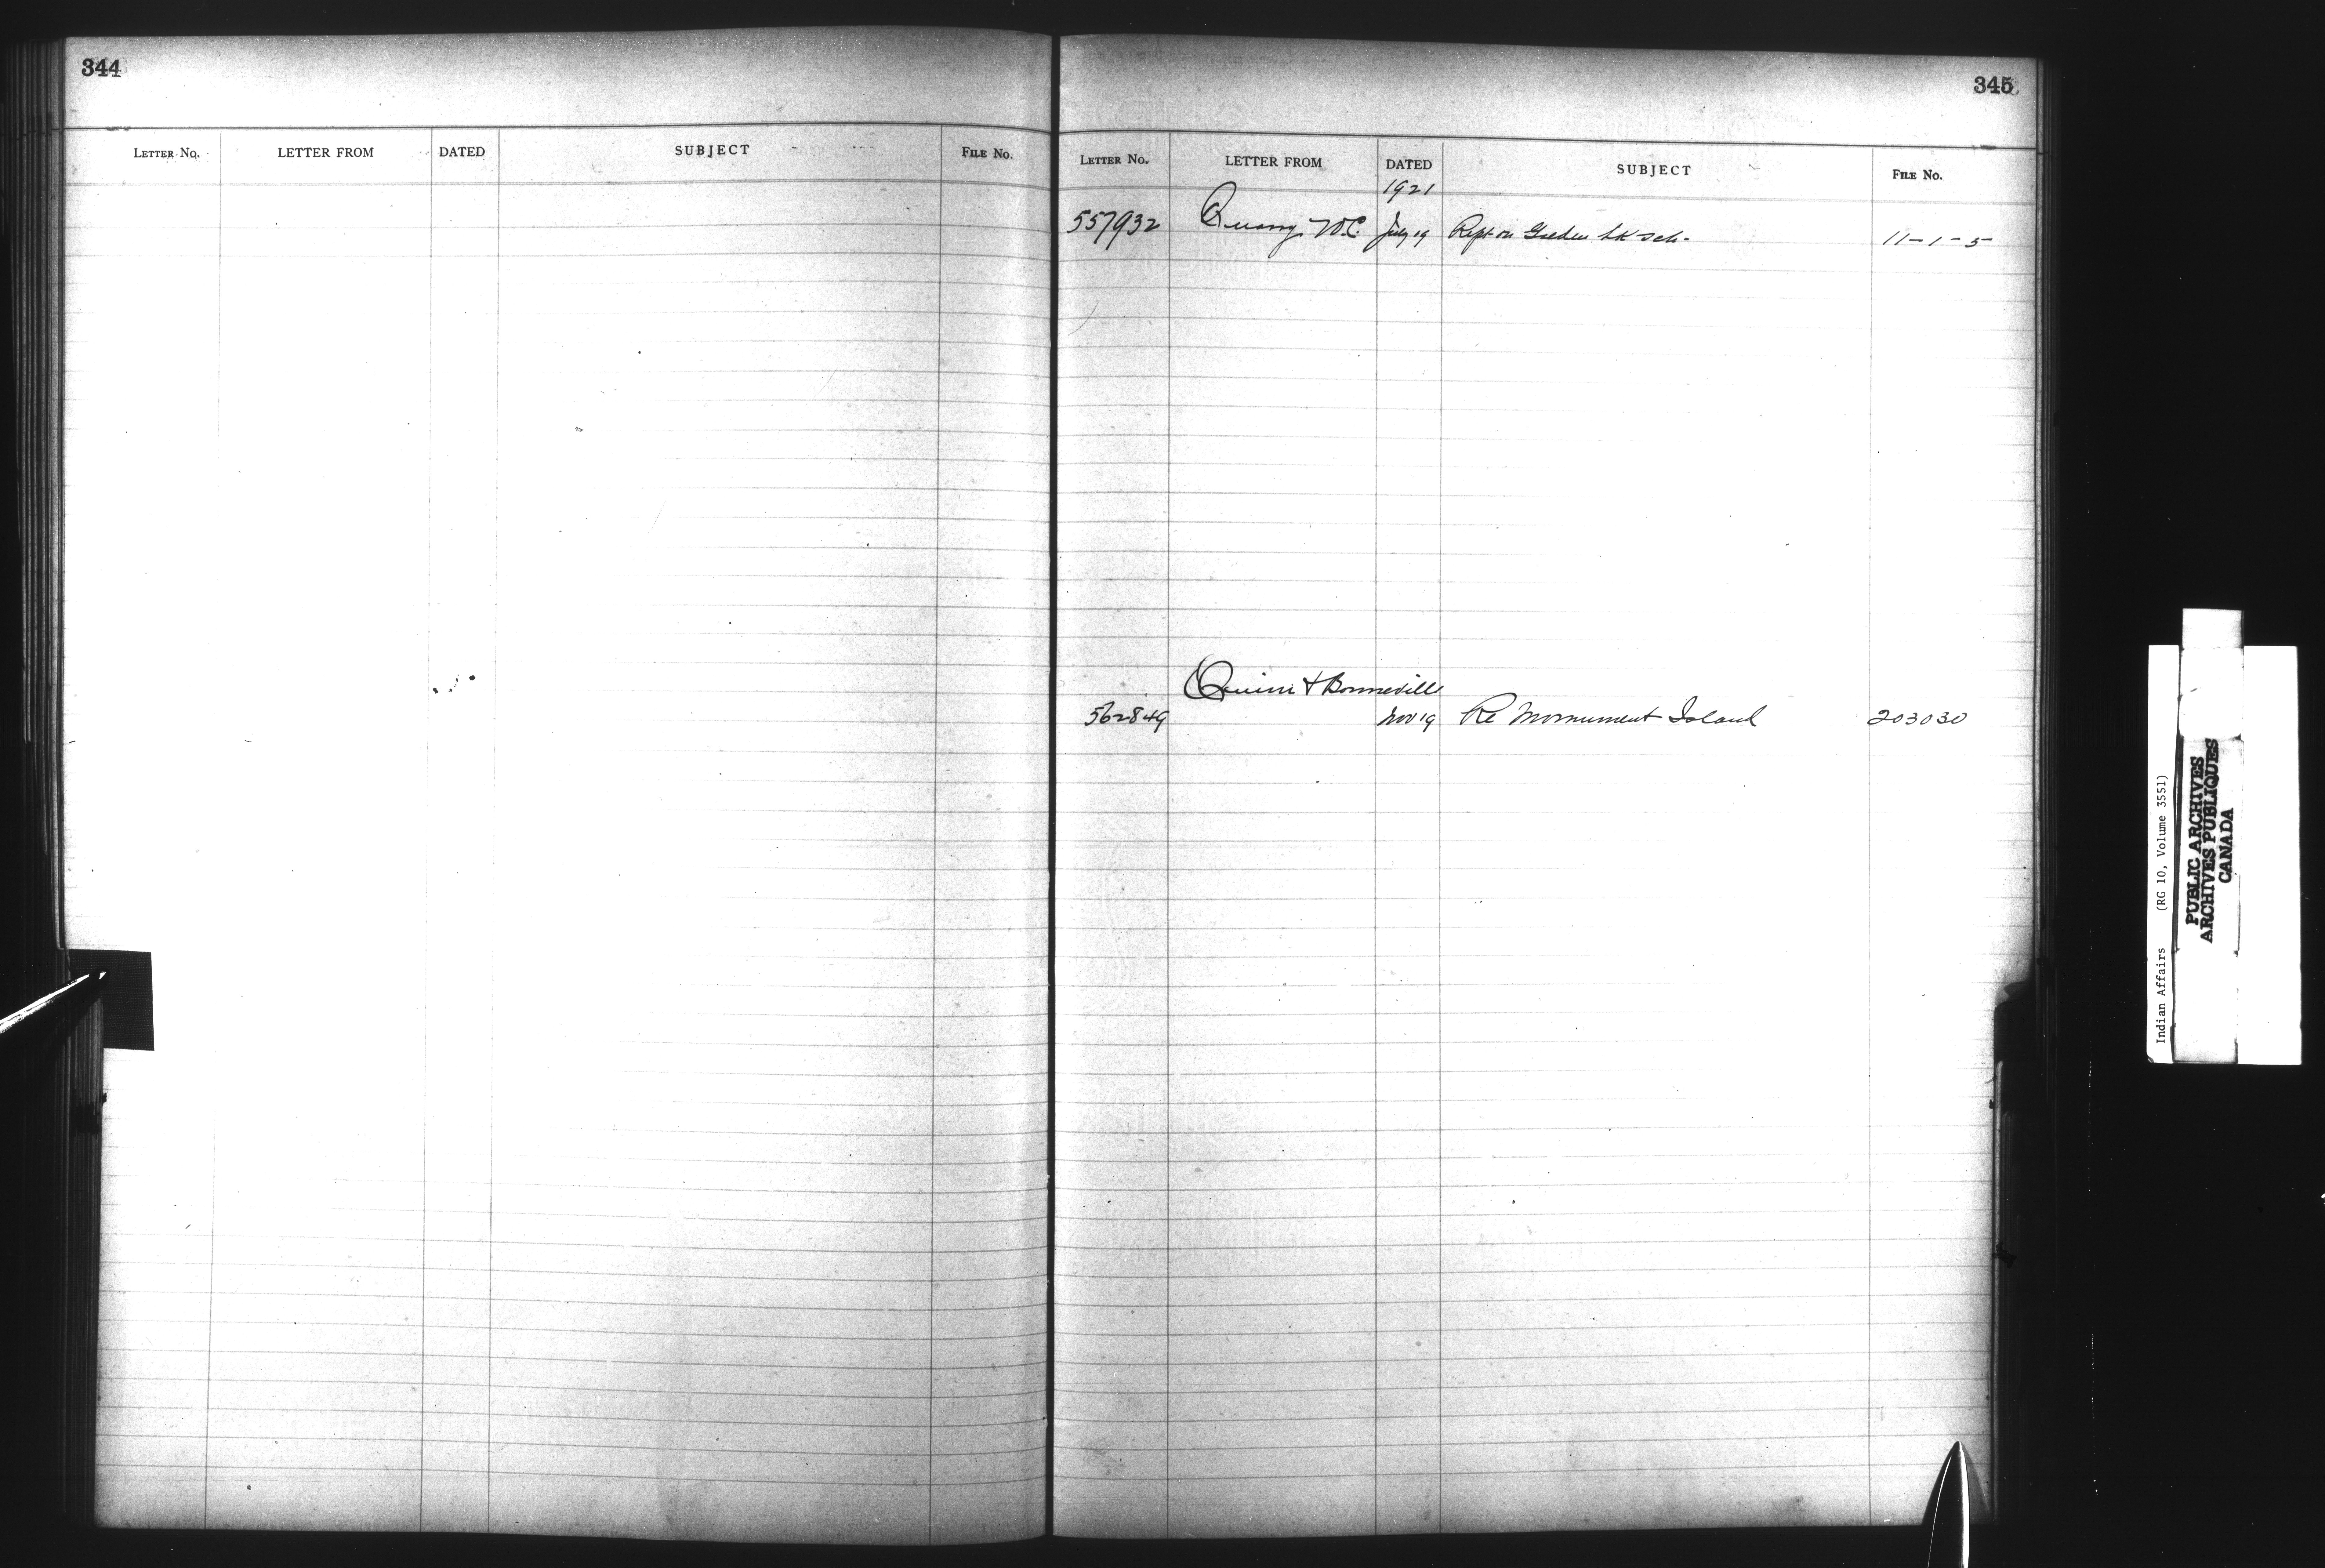 344
LETTER No. LETTER FROM DATED SUBJECT FILE No.
345
LETTER No. LETTER FROM DATED SUBJECT FILE No.
1921
557932 W.C. July 19 Rept on Lk Sch. 11-1-5
Quinn & Bonneville
562849 Nov 19 Re Monument Island 203030
Indian Affairs (RG 10, Volume 3551)
PUBLIC ARCHIVES
ARCHIVES PUBLIQUES
CANADA